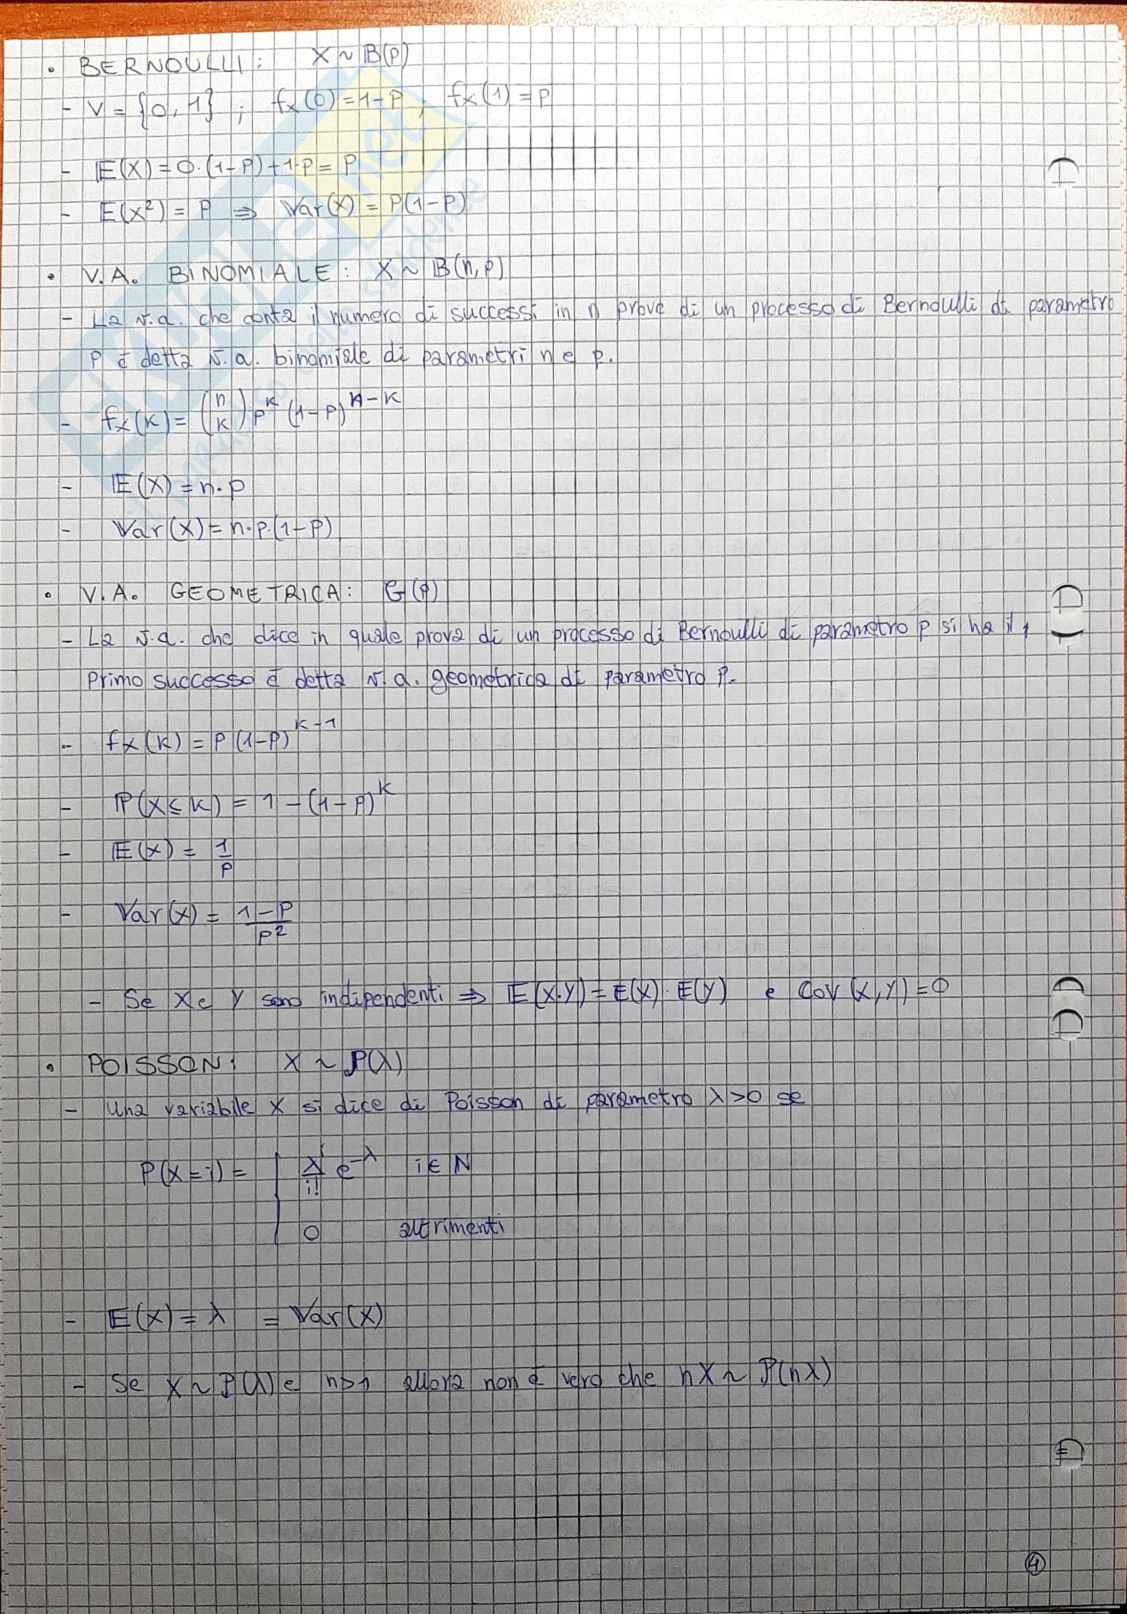 • BERNOULLI: X ~ B(p)
- V = {0,1} ; fx(0) = 1-P , fx(1) = P
- E(X) = 0·(1-P)+1·P = P
- E(X²) = P ⇒ Var(X) = P(1-P)
• V.A. BINOMIALE: X ~ B(n,p)
- La v.a. che conta il numero di successi in n prove di un processo di Bernoulli di parametro
P è detta v.a. binomiale di parametri n e p.
- fx(k) = (n k) p^k (1-p)^n-k
- E(X) = n·p
- Var(X) = n·p·(1-p)
• V.A. GEOMETRICA: G(p)
- La v.a. che dice in quale prova di un processo di Bernoulli di parametro p si ha il
primo successo è detta v.a. geometrica di parametro P.
- fx(k) = P(1-P)^k-1
- P(X≤k) = 1-(1-p)^k
- E(X) = 1/P
- Var(X) = 1-P/P²
- Se X e Y sono indipendenti ⇒ E(X·Y) = E(X)·E(Y) e Cov(X,Y) = 0
• POISSON: X ~ P(λ)
- Una variabile X si dice di Poisson di parametro λ>0 se
P(X=i) = λ^i/i! e^-λ i∈N
0 altrimenti
- E(X) = λ = Var(X)
- Se X ~ P(λ) e n>1 allora non è vero che nX ~ P(nλ)
4